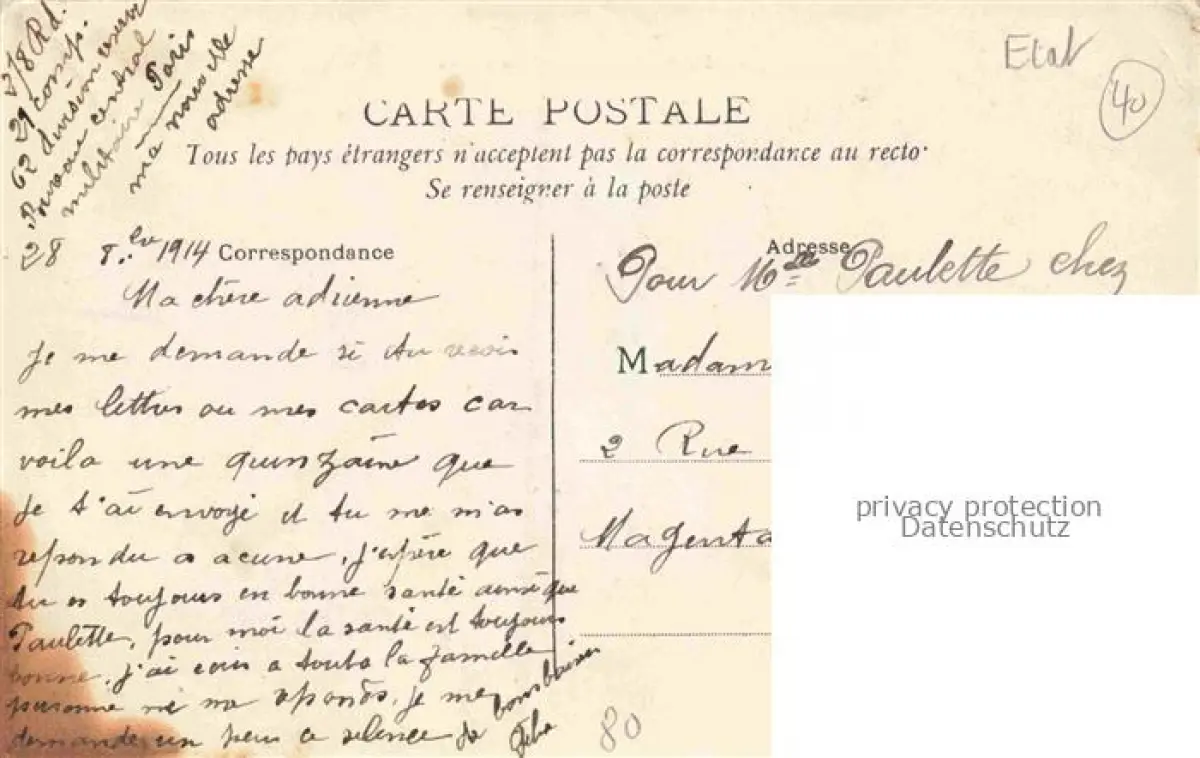 278 Rd.
29 comp.
62 division reserve
Bureau central
militaire Paris
ma nouvelle
adresse
Etat
40
CARTE POSTALE
Tous les pays étrangers n'acceptent pas la correspondance au recto.
Se renseigner à la poste
28 8.bre 1914 Correspondance
Ma chère adrienne
Je me demande si tu recois
mes lettres ou mes cartes car
voila une quinzaine que
Je t'ai envoyé et tu me m'as
repondu a acune, J'espère que
tu es toujours en bonne santé ainsi que
Paulette, pour moi la santé est toujours
bonne, j'ai ecris a toute la famille
personne ne me reponds, je me
demande un peu ce silence
bons baisers
80
Adresse
Pour Mlle Paulette chez
Madam
2 Rue
Magenta
privacy protection
Datenschutz